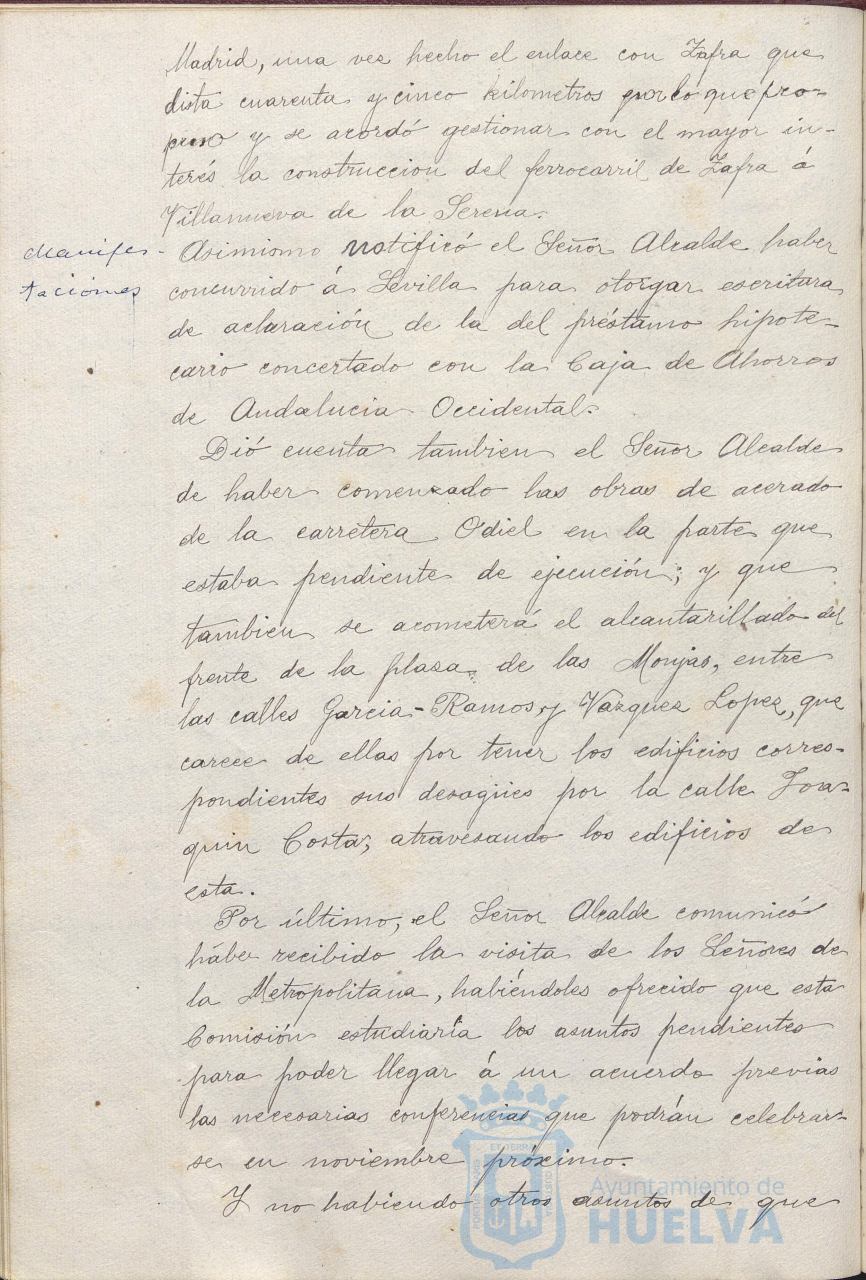 Madrid, una vez hecho el enlace con Zafra que
dista cuarenta y cinco kilometros por lo que pro-
puso y se acordó gestionar con el mayor in-
terés la construccion del ferrocarril de Zafra á
Villanueva de la Serena.
Manifes-
taciónes
Asimismo notificó el Señor Alcalde haber
concurrido á Sevilla para otorgar escritura
de aclaración de la del préstamo hipote-
cario concertado con la Caja de Ahorros
de Andalucia Occidental.
Dió cuenta tambien el Señor Alcalde
de haber comenzado las obras de acerado
de la carretera Odiel en la parte que
estaba pendiente de ejecución; y que
tambien se acometerá el alcantarillado del
frente de la plaza de las Monjas, entre
las calles Garcia-Ramos y Vazquez Lopez, que
carece de ellas por tener los edificios corres-
pondientes sus desagües por la calle Joa-
quin Costa, atravesando los edificios de
esta.
Por último, el Señor Alcalde comunicó
háber recibido la visita de los Señores de
la Metropolitana, habiéndoles ofrecido que esta
Comisión estudiaría los asuntos pendientes
para poder llegar á un acuerdo previas
las necesarias conferencias que podrán celebrar-
se en noviembre próximo.
Y no habiendo otros asuntos de que
Ayuntamiento de
HUELVA